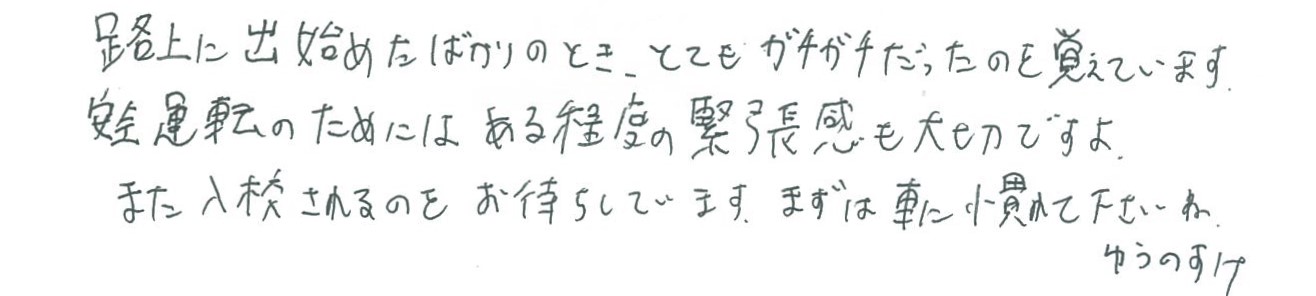 路上に出始めたばかりのとき、とてもガチガチだったのを覚えています。
安全運転のためにはある程度の緊張感も大切ですよ。
また入校されるのをお待ちしています。まずは車に慣れて下さいね。
ゆうのすけ